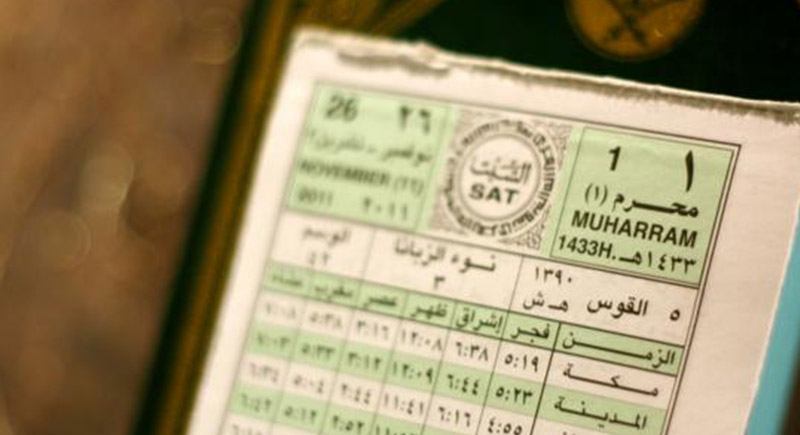 26 ٢٦
نوفمبر - تشرين٢
NOVEMBER (11)
2011 ٢٠١١
السَّبْت
SAT
1 ١
محـرم (١)
MUHARRAM
1433H. ١٤٣٣هـ
الوسم
٤٢
نـوء الزبانا
٣
١٣٩٠
٥ القوس هـ ش
الزمـن فجر إشراق ظهر عصر مغرب عشاء
مكـة ٥:١٩ ٦:٣٨ ١٢:٠٨ ٣:١٦ ٥:٣٨ ٧:٠٨
المدينـة ٥:٢٣ ٦:٤٤ ١٢:٠٩ ٣:١٢ ٥:٣٣ ٧:٠٣
٤:٥٥ ٦:١٦ ١١:٤١ ٢:٤٤ ٥:٠٤ ٦:٣٤
٢:٥٢ ٥:١٢ ٦:٤٢